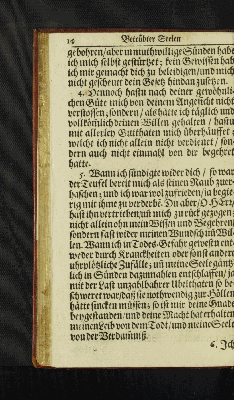 14 Betrübter Seelen
gebohren/aber in muthwillige Sünden habe
ich mich selbst gestürtzet; kein Gewissen hab
ich mir gemacht dich zu beleidigen/und mich
nicht gescheuet dein Gesetz hindan zusetzen.
4. Dennoch hastu nach deiner gewöhnli-
chen Güte mich von deinem Angesicht nicht
verstossen/sondern/ als hätte ich täglich und
vollkömlich deinen Willen gehalten/hastu
mit allerley Gutthaten mich überhäuffet/
welche ich nicht allein nicht verdienet/ son-
dern auch nicht einmahl von dir begehret
hatte.
5. Wann ich sündigte wider dich / so war
der Teufel bereit mich als seinen Raub zuer-
haschen; und ich war wol zufrieden/ja begie-
rig mit ihme zu verderbē. Du aber/O HErr/
hast ihn vertriebē/uñ mich zu rück gezogen;
nicht allein ohn mein Wissen und Begehren/
sondern fast wider meinen Wundsch uñ Wil-
len. Wann ich in Todes-Gefahr gewesen ent-
weder durch Kranckheiten oder sonst andere
uhrplötzliche Zufälle; uñ meine Seele gäntz-
lich in Sünden dazumahlen entschlaffen/ja
mit der Last unzahlbahrer Ubelthaten so be-
schweret war/daß sie nothwendig zur Höllen
hätte sincken müssen; so ist mir deine Gnade
beygestanden/und deine Macht hat erhalten
meinen Leib von dem Tod/ und meine Seele
von der Verdamniß.
6. Ich